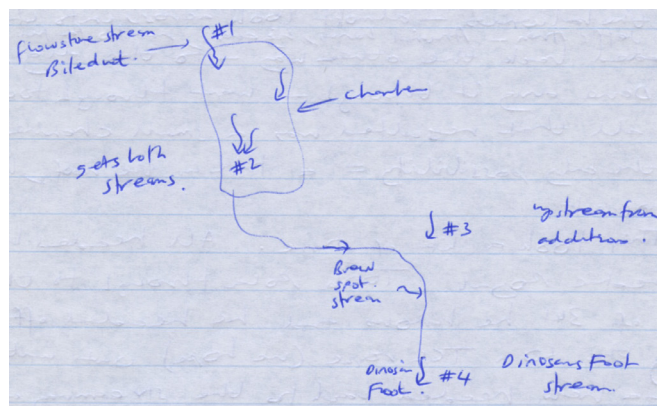 #1
flowstone stream
Bileduct.
Chamber
#2
gets both
streams.
#3
upstream from
additions.
Brow
spot.
stream
Dinosaur
Foot.
#4
Dinosaurs Foot
stream.